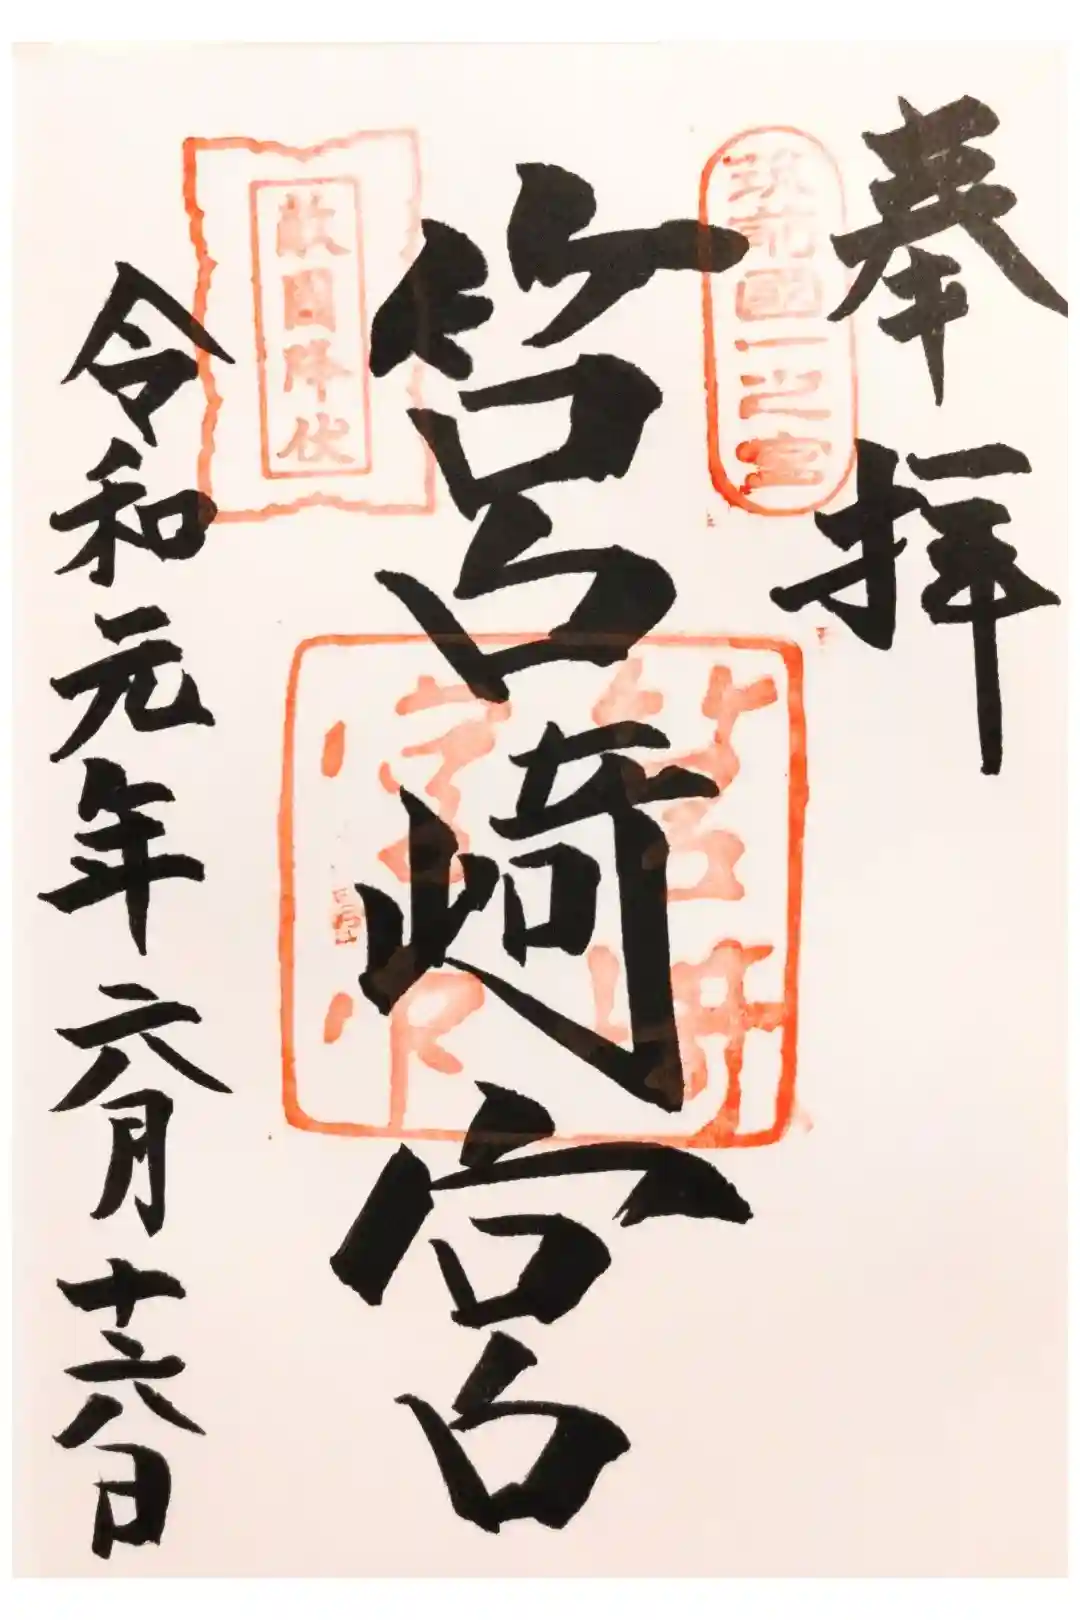 奉拝
筑前國一之宮
筥崎宮
筥崎宮
敵國降伏
令和元年六月十六日